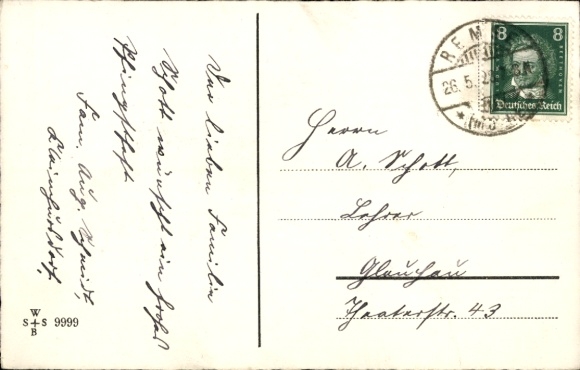 Der lieben Familie
Schott wünscht ein frohes
Pfingstfest
Fam. Aug. Schmidt,
W
S+S 9999
B
8 8
BEETHOVEN
Deutsches Reich
REM
26.5.2
Herrn
A. Schott,
Lehrer
Glauchau
Theaterstr. 43